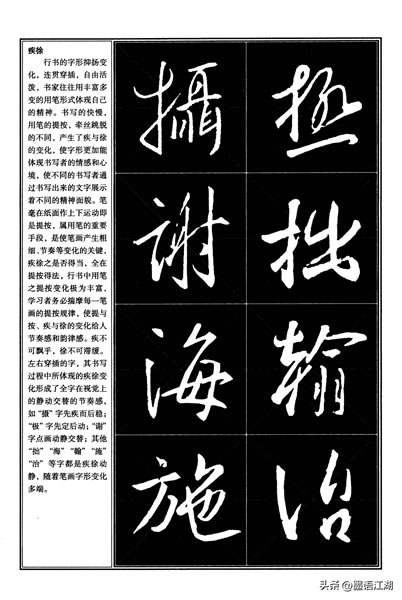 疾徐
行书的字形抑扬变
化，连贯穿插，自由活
泼，书家往往用丰富多
变的用笔形式体现自己
的精神。书写的快慢，
用笔的提按，牵丝跳脱
的不同，产生了疾与徐
的变化，使字形更加能
体现书写者的情感和心
境，使不同的书写者通
过书写出来的文字展示
着不同的精神面貌。笔
毫在纸面作上下运动即
是提按，属用笔的重要
手段，是使笔画产生粗
细、节奏等变化的关键，
疾徐之是否得当，全在
提按得法，行书中用笔
之提按变化极为丰富，
学习者务必揣摩每一笔
画的提按规律，使提与
按、疾与徐的变化给人
节奏感和韵律感。疾不
可飘乎，徐不可滞缓。
左右穿插的字，其书写
过程中所体现的疾徐变
化形成了全字在视觉上
的静动交替的节奏感，
如“摄”字先疾而后稳；
“极”字先定后动；“谢”
字点画动静交替；其他
“拙”“海”“翰”“施”
“治”等字都是疾徐动
静，随着笔画字形变化
多端。
極
拙
翰
治
攝
謝
海
施
头条@墨语江湖